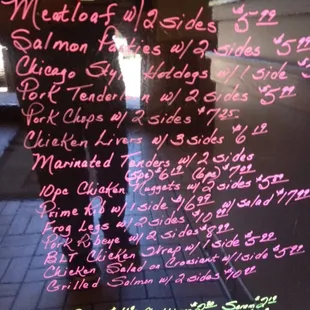 Meatloaf w/ 2 sides $5.99
Salmon Patties w/ 2 sides $5.99
Chicago Style Hotdogs w/ 1 side $
Pork Tenderloin w/ 2 sides $5.99
Pork Chops w/ 2 sides $7.25
Chicken Livers w/ 3 sides $6.19
Marinated Tenders w/ 2 sides
(5pc) $6.19 (6pc) $7.09
10pc Chicken Nuggets w/ 2 sides $5.89
Prime Rib w/ 1 side $16.99 w/ salad $17.99
Frog Legs w/ 2 sides $10.99
Pork Ribeye w/ 2 sides $8.99
BLT Chicken Wrap w/ 1 side $5.99
Chicken Salad on Croissant w/ 1 side $5.99
Grilled Salmon w/ 2 sides $10.99